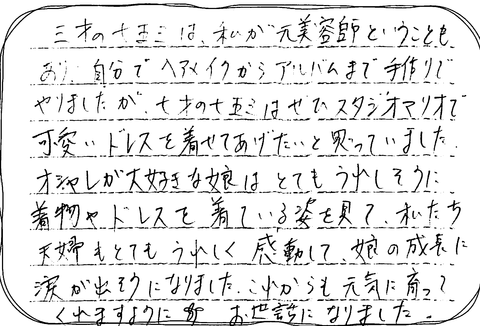 三才の七五三は、私が元美容師ということも
あり、自分でヘアメイクからアルバムまで手作りで
やりましたが、七才の七五三はぜひスタジオマリオで
可愛いドレスを着せてあげたいと思っていました。
オシャレが大好きな娘はとてもうれしそうに
着物やドレスを着ている姿を見て、私たち
夫婦もとてもうれしく感動して、娘の成長に
涙が出そうになりました。これからも元気に育って
くれますように お世話になりました。